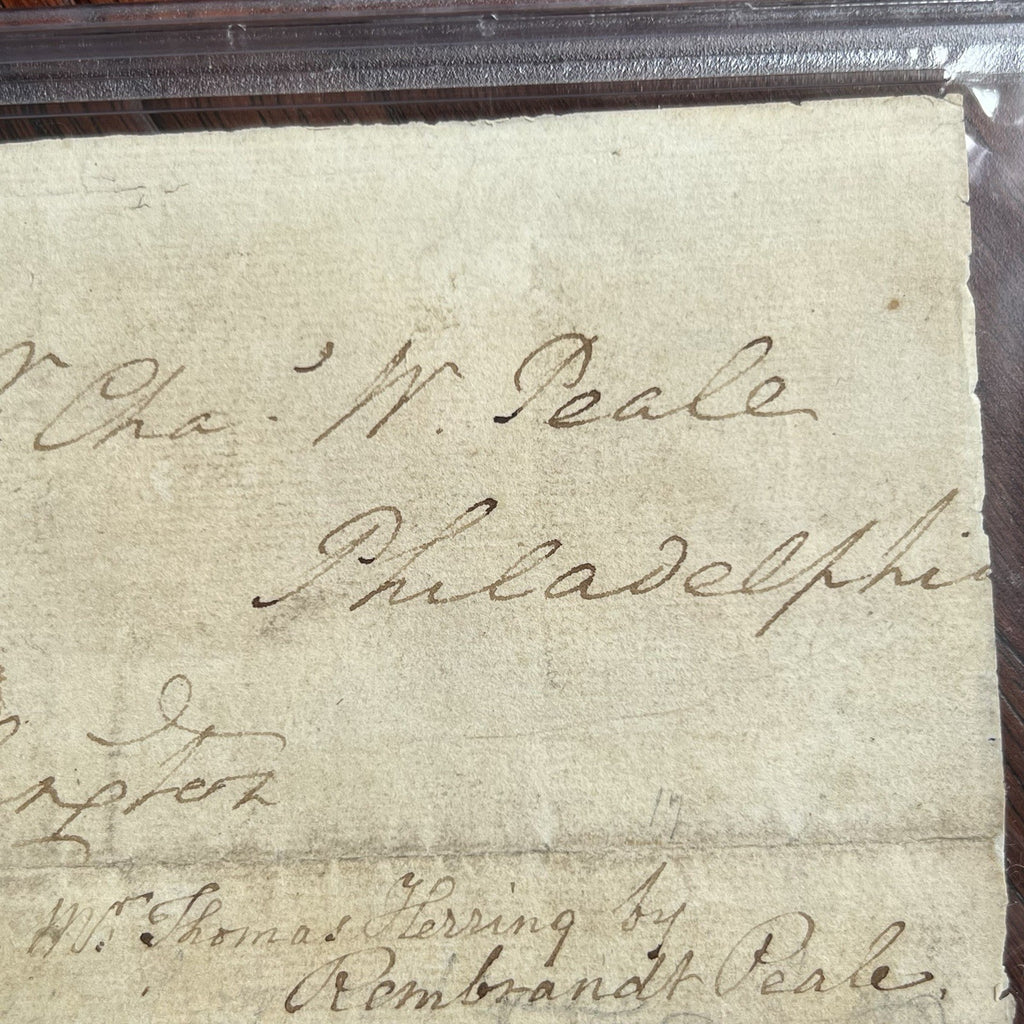 r Chas. W. Peale
Philadelphi
ngton
Mr. Thomas Herring by
Rembrandt Peale.
17